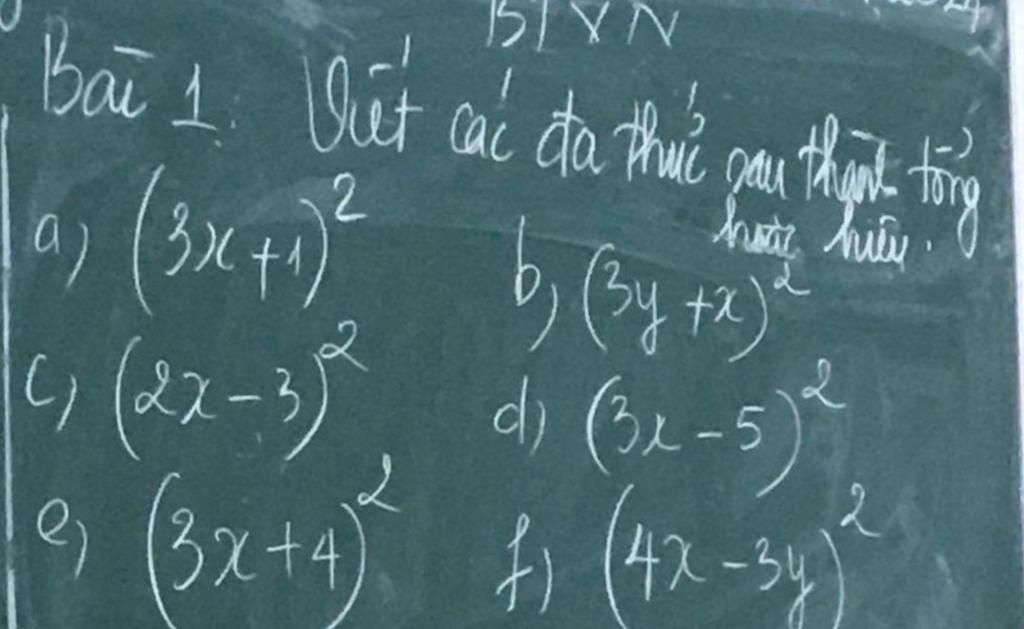 BTVN
Bài 1. Viết các đa thức sau thành tổng
hoặc hiệu.
a) (3x+1)²
b) (3y+x)²
c) (2x-3)²
d) (3x-5)²
e) (3x+4)²
f) (4x-3y)²